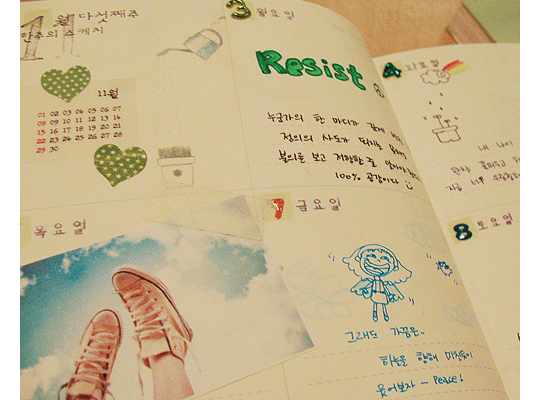 11월 다섯째주
한주의 스케치
11월
01 02 03 04 05 06 07
08 09 10 11 12 13 14
15 16 17 18 19 20 21
22 23 24 25 26 27 28
29 30
3 월요일
Resist
누군가의 한 마디가
정의의 사도가
불의를 보고 저항할 줄
100% 공감이다
4 화요일
내 나이
지금
목요일
7 금요일
그래도 가끔은..
하늘을 향해 미친듯이
웃어보자 - Peace!
8 토요일